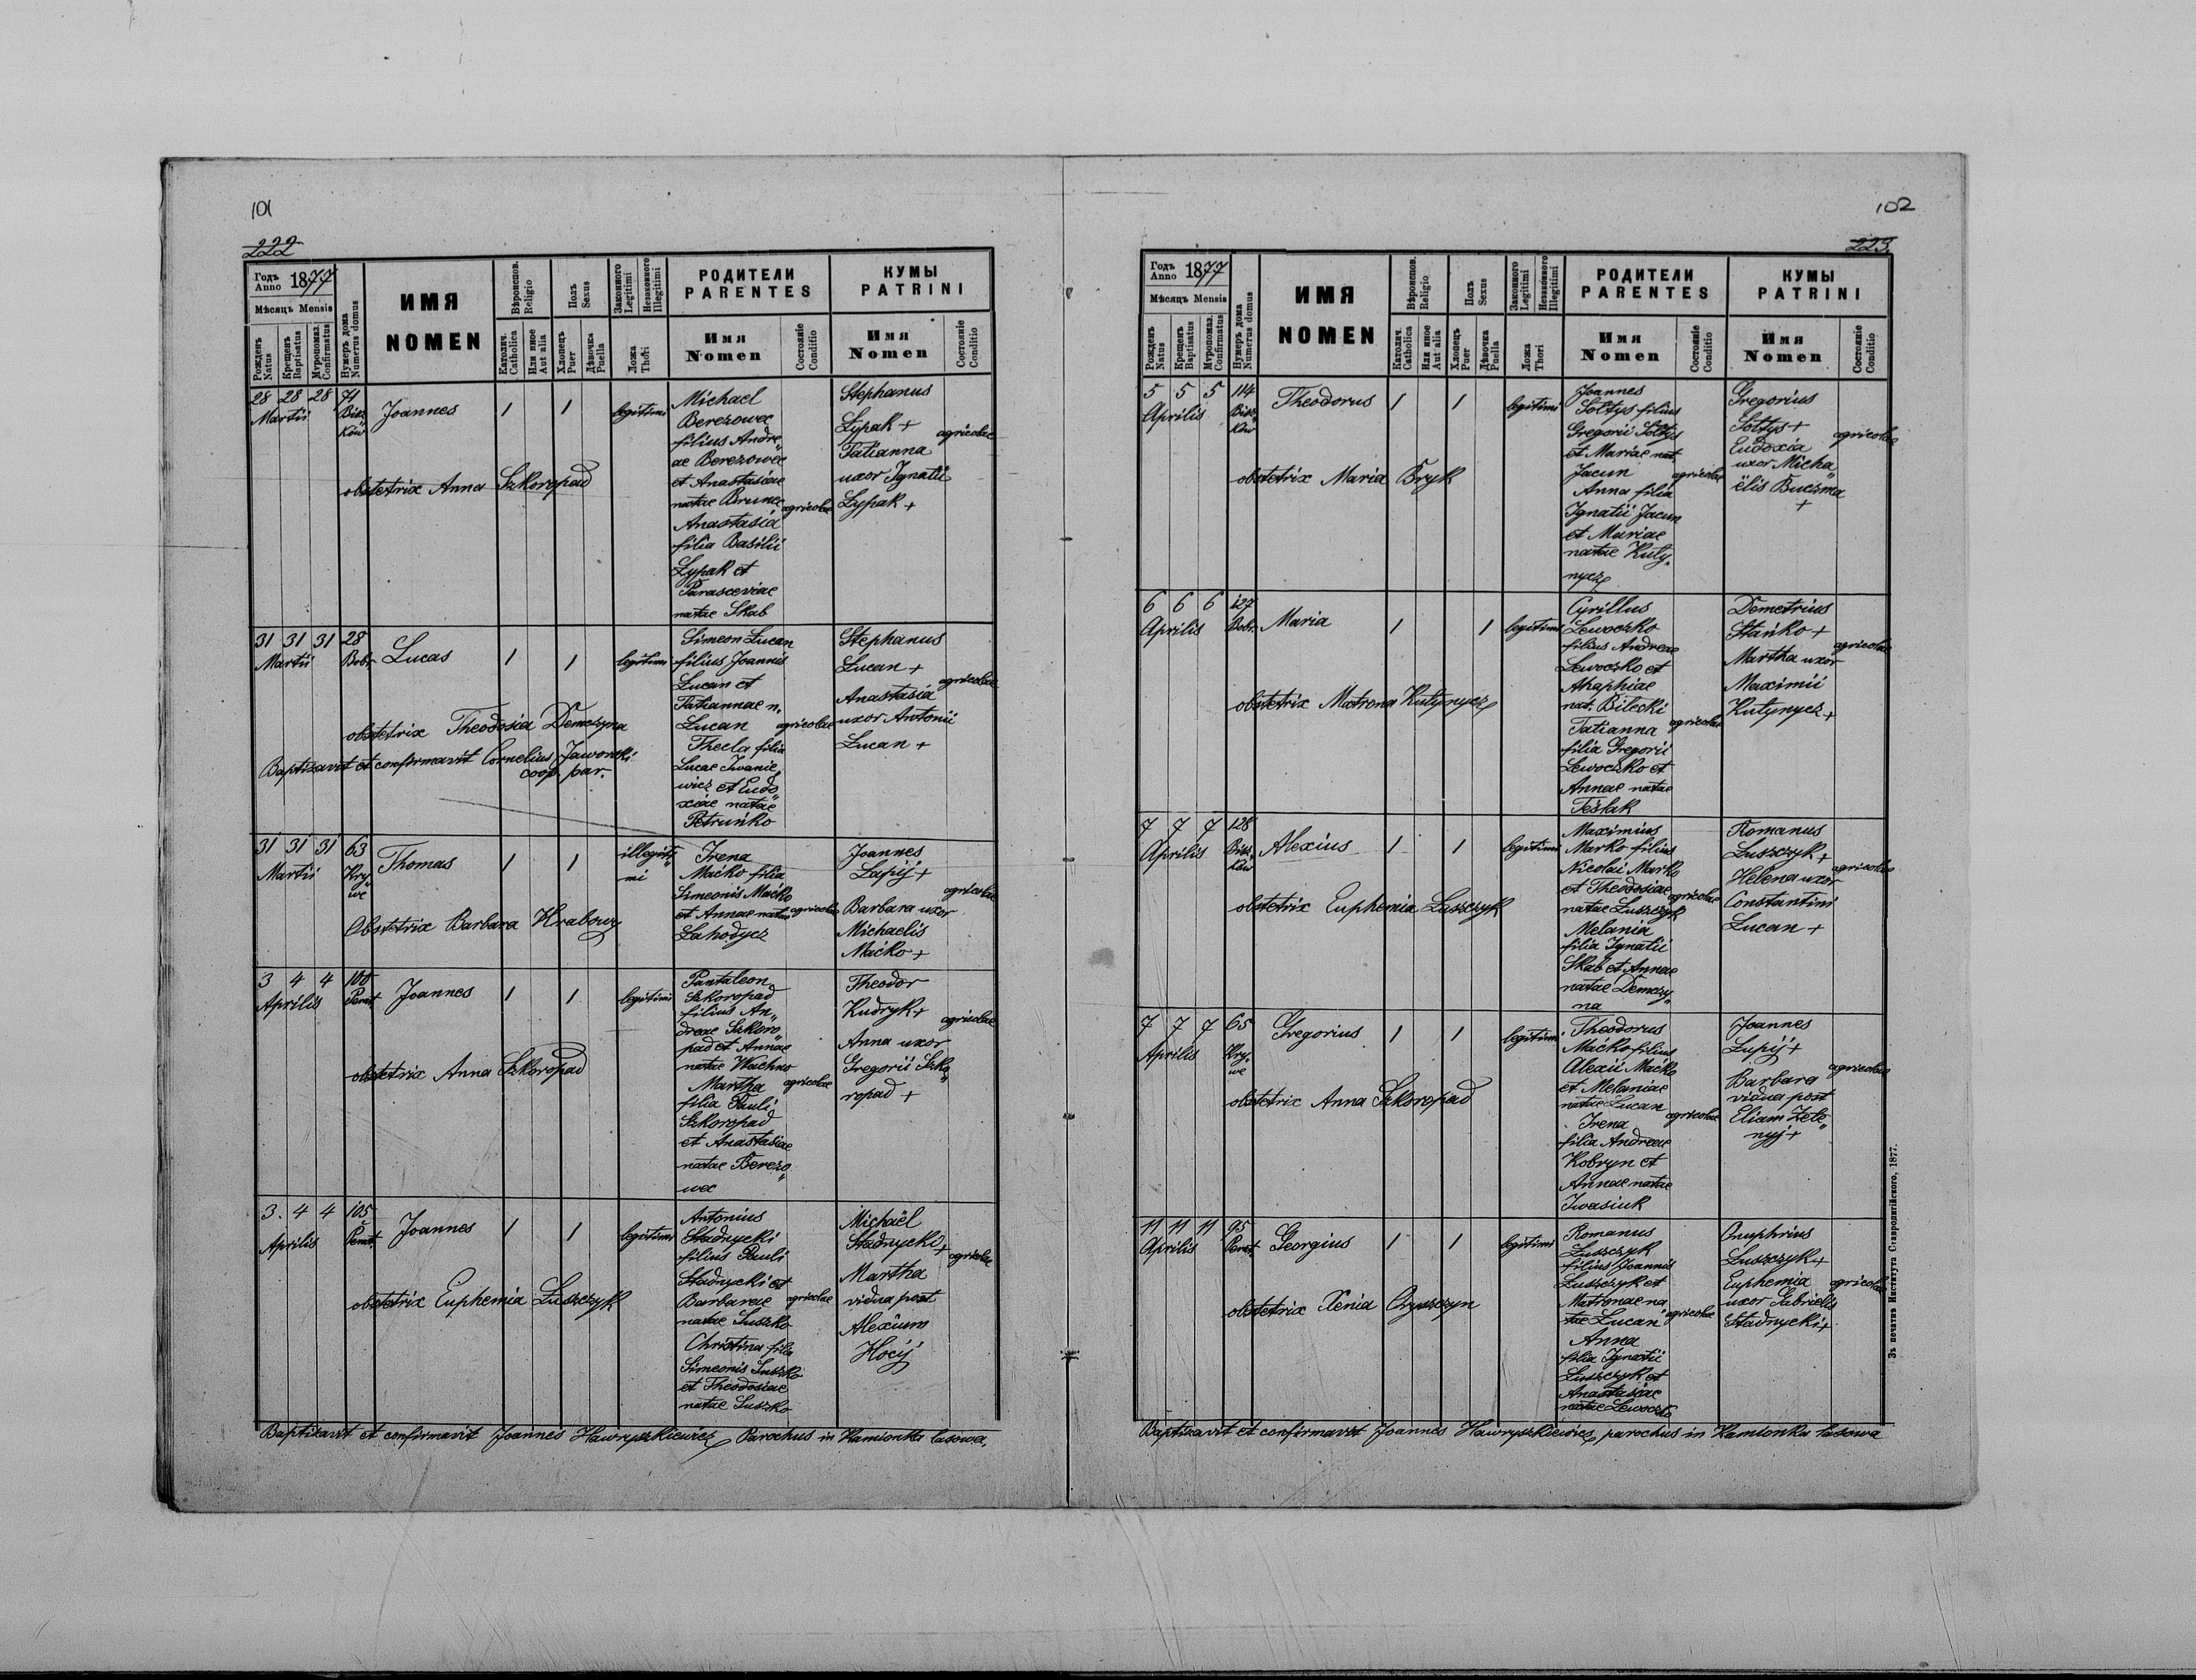 101
222
Годъ Anno 1877
Мѣсяцъ Mensis
Рожденъ Natus
Крещенъ Baptisatus
Мѵропомаз. Confirmatus
Нумеръ дома Numerus domus
ИМЯ
NOMEN
Вѣроиспов. Religio
Католич. Catholica
Или иное Aut alia
Полъ Sexus
Хлопецъ Puer
Дѣвочка Puella
Законного Legitimi
Незаконного Illegitimi
Ложа Thori
РОДИТЕЛИ
PARENTES
Имя
Nomen
Состояніе Conditio
КУМЫ
PATRINI
Имя
Nomen
Состояніе Conditio
28 28 28 71
Martii
Bisz„
ków
Joannes
1 1
legitimi
Michael
Berezowec
filius Andre„
ae Berezowec
et Anastasiae
natae Brunec
agricolae
Anastasia
filia Basilii
Łypak et
Parasceviae
natae Skab
Stephanus
Łypak +
Tatianna
uxor Ignatii
Łypak +
agricolae
obstetrix Anna Szkoropad
31 31 31 28
Martii
Bobr.
Lucas
1 1
legitimi
Simeon Łucan
filius Joannis
Łucan et
Tatiannae n.
Łucan
agricolae
Thecla filia
Lucae Iwanie„
wicz et Eudo„
xiae natae
Petruńko
Stephanus
Łucan +
Anastasia
uxor Antonii
Łucan +
agricolae
obstetrix Theodosia Demczyna
Baptizavit et confirmavit Cornelius Jaworski
coop. par.
31 31 31 63
Martii
Kry„
we
Thomas
1 1
illegiti„
mi
Irena
Maćko filia
Simeonis Maćko
et Annae natae
agricolae
Łahodycz
Joannes
Łupij +
Barbara uxor
Michaelis
Maćko +
agricolae
Obstetrix Barbara Hrabowy
3 4 4 100
Aprilis
Perest.
Joannes
1 1
legitimi
Pantaleon
Szkoropad
filius An„
dreae Szkoro
pad et Annae
natae Wachno
Martha
agricolae
filia Pauli
Szkoropad
et Anastasiae
natae Berezo„
wec
Theodor
Kudryk +
Anna uxor
Gregorii Szko„
ropad +
agricolae
obstetrix Anna Szkoropad
3. 4 4 105
Aprilis
Perest.
Joannes
1 1
legitimi
Antonius
Stadnycki
filius Pauli
Stadnycki et
Barbarae
agricolae
natae Suszko
Christina filia
Simeonis Suszko
et Theodosiae
natae Suszko
Michaël
Stadnycki +
Martha
vidua post
Alexium
Hocij
agricolae
obstetrix Euphemia Łuszczyk
Baptizavit et confirmavit Joannes Hawryszkiewicz, Parochus in Kamionka lasowa,
102
223.
Годъ Anno 1877
Мѣсяцъ Mensis
Рожденъ Natus
Крещенъ Baptisatus
Мѵропомаз. Confirmatus
Нумеръ дома Numerus domus
ИМЯ
NOMEN
Вѣроиспов. Religio
Католич. Catholica
Или иное Aut alia
Полъ Sexus
Хлопецъ Puer
Дѣвочка Puella
Законного Legitimi
Незаконного Illegitimi
Ложа Thori
РОДИТЕЛИ
PARENTES
Имя
Nomen
Состояніе Conditio
КУМЫ
PATRINI
Имя
Nomen
Состояніе Conditio
5 5 5 114
Aprilis
Bisz„
ków
Theodorus
1 1
legitimi
Joannes
Sołtys filius
Gregorii Sołtys
et Mariae nat.
Jacun
agricolae
Anna filia
Ignatii Jacun
et Mariae
natae Kuty„
nycz
Gregorius
Sołtys +
Eudoxia
uxor Micha„
ëlis Buczma
+
agricolae
obstetrix Maria Bryk
6 6 6 127
Aprilis
Bobr.
Maria
1 1
legitimi
Cyrillus
Lewoczko
filius Andreae
Lewoczko et
Ahaphiae
nat. Bilecki
Tatianna
agricolae
filia Gregorii
Lewoczko et
Annae natae
Teślak
Demetrius
Stańko +
Martha uxor
Maximii
Kutynycz +
agricolae
obstetrix Matrona Kutynycz
7 7 7 128
Aprilis
Bisz„
ków
Alexius
1 1
legitimi
Maximius
Marko filius
Nicolai Marko
et Theodosiae
agricolae
natae Łuszczyk
Melania
filia Ignatii
Skab et Annae
natae Demczy„
na
Romanus
Łuszczyk +
Helena uxor
Constantini
Łucan +
agricolae
obstetrix Euphemia Łuszczyk
7 7 7 65
Aprilis
Kry„
we
Gregorius
1 1
legitimi
Theodorus
Maćko filius
Alexii Maćko
et Melaniae
natae Łucan
agricolae
Irena
filia Andreae
Kobryn et
Annae natae
Iwasiuk
Joannes
Łupij +
Barbara
vidua post
Eliam Zelo„
nyj +
agricolae
obstetrix Anna Szkoropad
11 11 11 95
Aprilis
Perest.
Georgius
1 1
legitimi
Romanus
Łuszczyk
filius Joannis
Łuszczyk et
Matronae na
tae Łucan
agricolae
Anna
filia Ignatii
Łuszczyk et
Anastasiae
natae Lewoczko
Onuphrius
Łuszczyk +
Euphemia
uxor Gabrielis
Stadnycki +
agricolae
obstetrix Xenia Oryszczyn
Baptizavit et confirmavit Joannes Hawryszkiewicz, parochus in Kamionka lasowa
Зъ печатнѣ Института Ставропигійского, 1877.